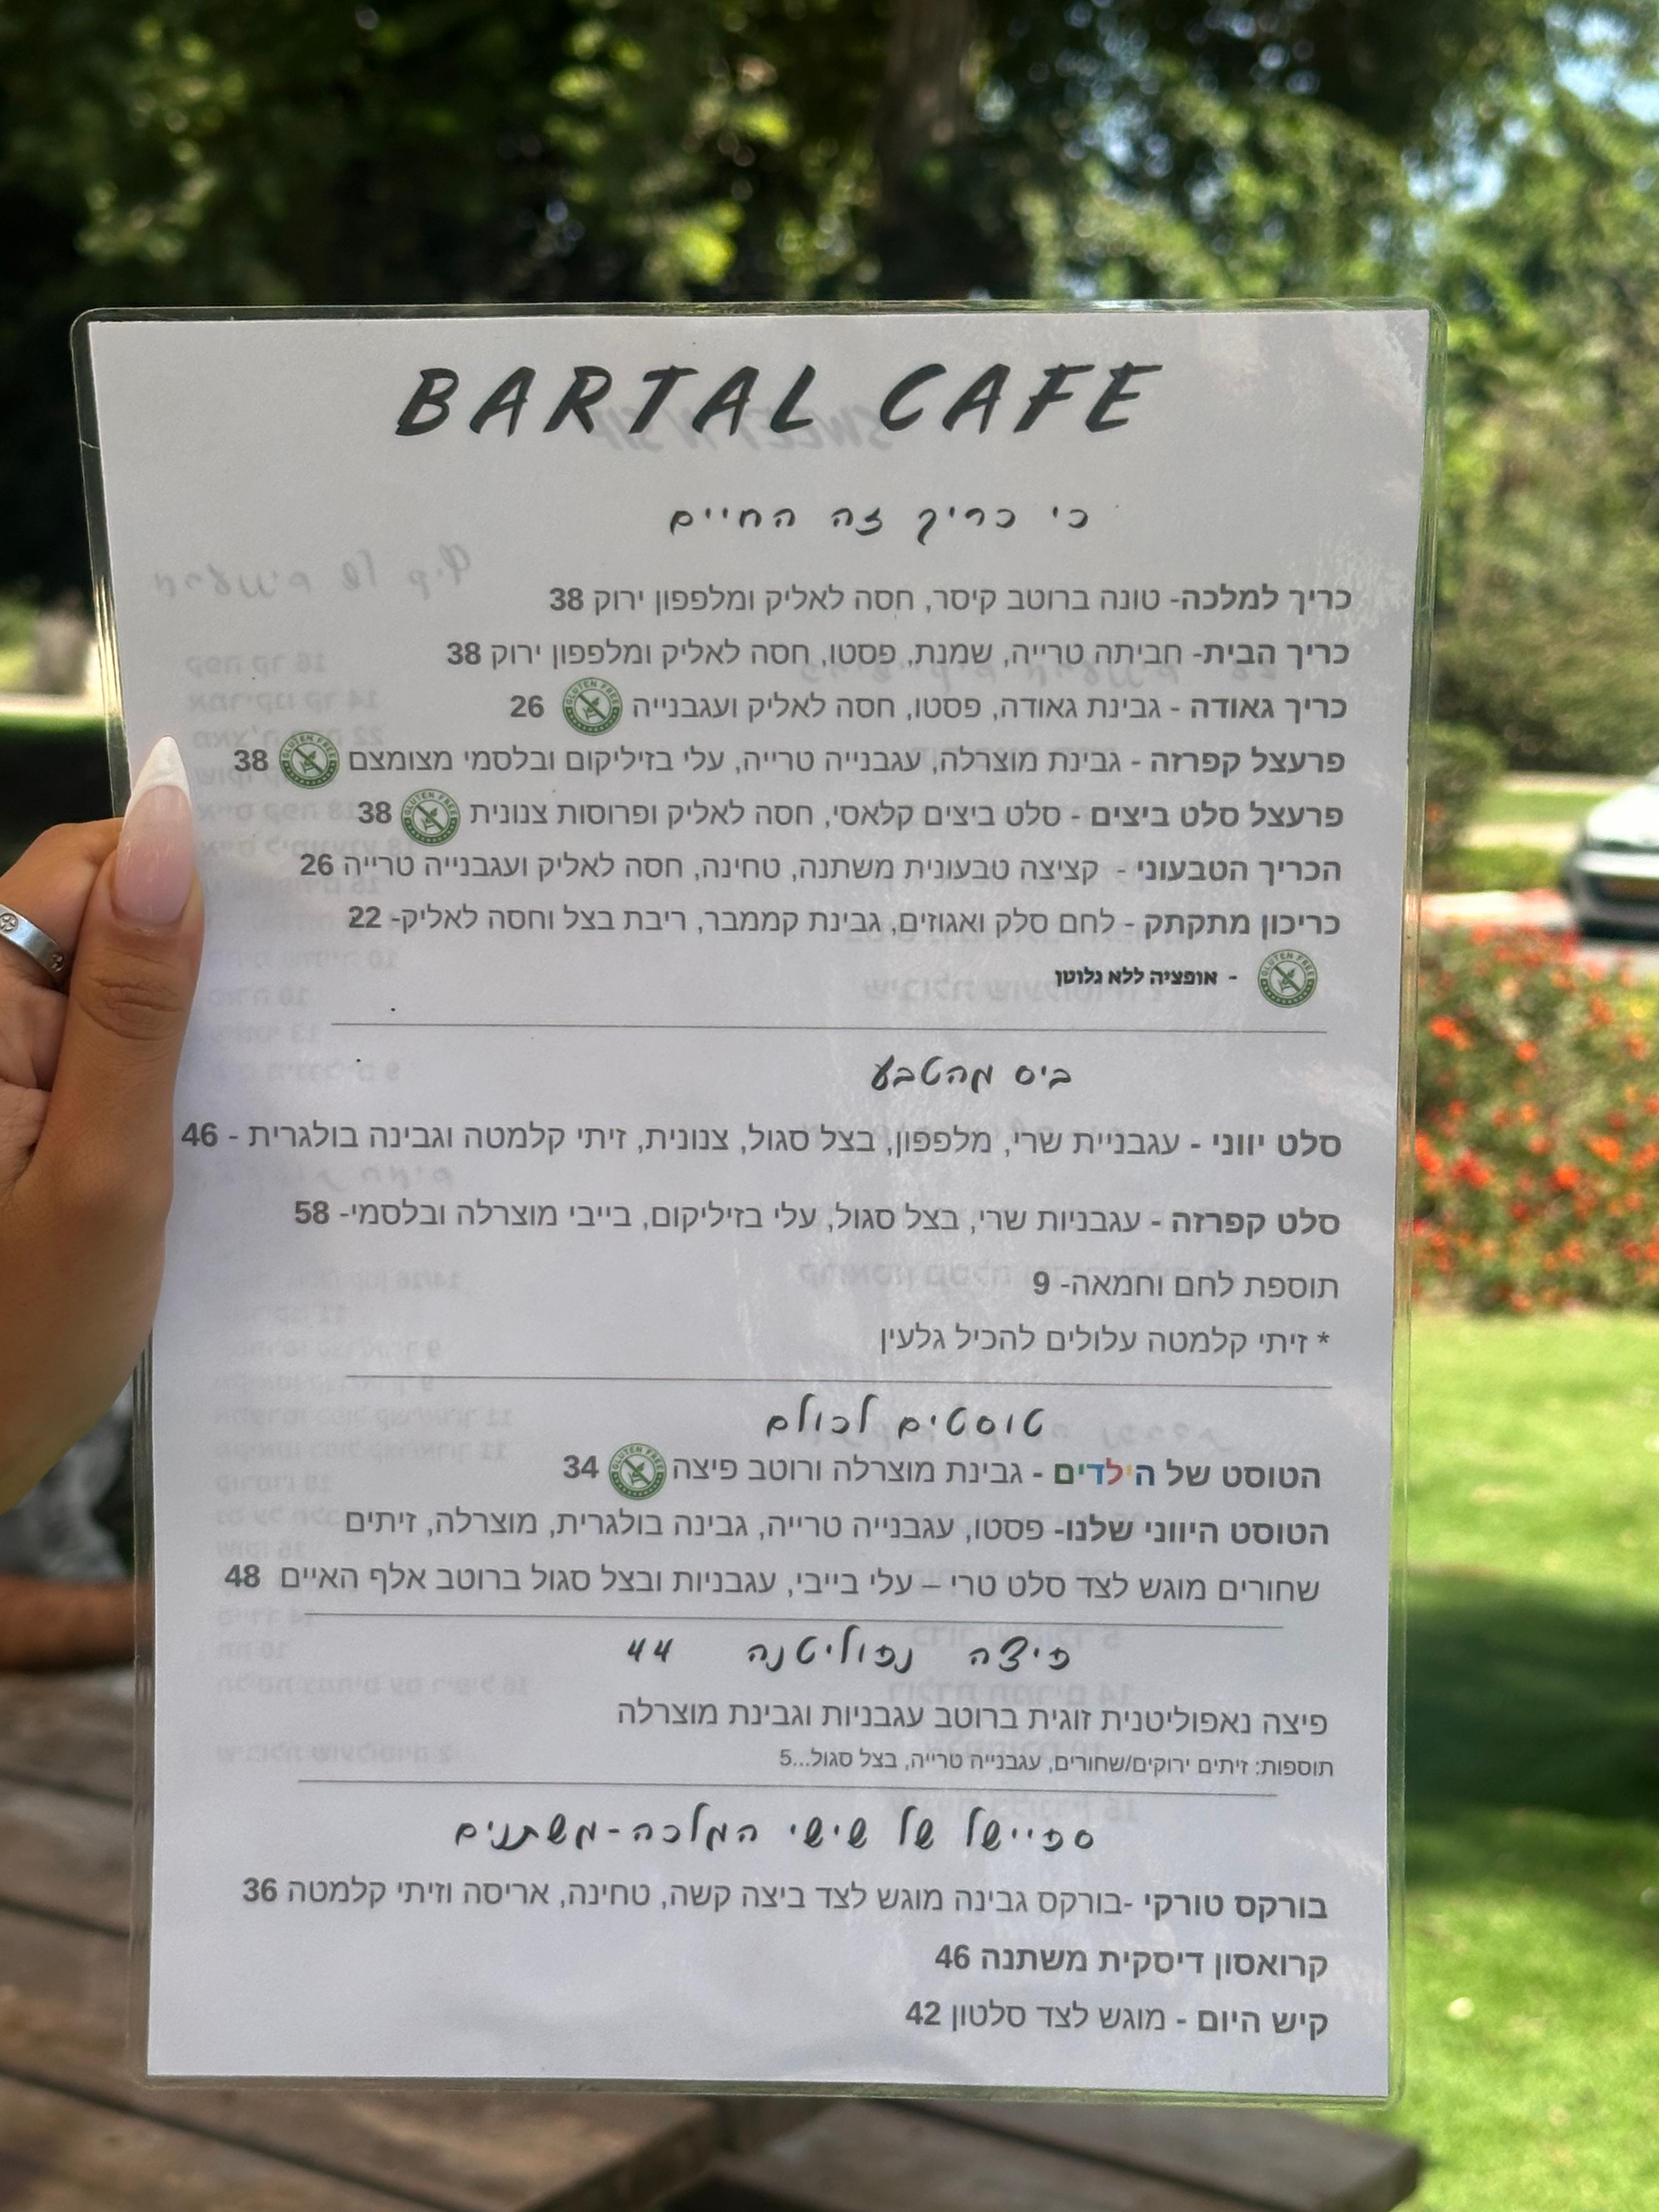 BARTAL CAFE
כי כריך זה החיים
כריך למלכה- טונה ברוטב קיסר, חסה לאליק ומלפפון ירוק 38
כריך הבית- חביתה טרייה, שמנת, פסטו, חסה לאליק ומלפפון ירוק 38
כריך גאודה - גבינת גאודה, פסטו, חסה לאליק ועגבנייה GLUTEN FREE 26
פרעצל קפרזה - גבינת מוצרלה, עגבנייה טרייה, עלי בזיליקום ובלסמי מצומצם GLUTEN FREE 38
פרעצל סלט ביצים - סלט ביצים קלאסי, חסה לאליק ופרוסות צנונית GLUTEN FREE 38
הכריך הטבעוני - קציצה טבעונית משתנה, טחינה, חסה לאליק ועגבנייה טרייה 26
כריכון מתקתק - לחם סלק ואגוזים, גבינת קממבר, ריבת בצל וחסה לאליק- 22
GLUTEN FREE - אופציה ללא גלוטן
ביס מהטבע
סלט יווני - עגבניית שרי, מלפפון, בצל סגול, צנונית, זיתי קלמטה וגבינה בולגרית - 46
סלט קפרזה - עגבניות שרי, בצל סגול, עלי בזיליקום, בייבי מוצרלה ובלסמי- 58
תוספת לחם וחמאה- 9
* זיתי קלמטה עלולים להכיל גלעין
טוסטים לכולם
הטוסט של הילדים - גבינת מוצרלה ורוטב פיצה GLUTEN FREE 34
הטוסט היווני שלנו- פסטו, עגבנייה טרייה, גבינה בולגרית, מוצרלה, זיתים
שחורים מוגש לצד סלט טרי – עלי בייבי, עגבניות ובצל סגול ברוטב אלף האיים 48
פיצה נפוליטנה 44
פיצה נאפוליטנית זוגית ברוטב עגבניות וגבינת מוצרלה
תוספות: זיתים ירוקים/שחורים, עגבנייה טרייה, בצל סגול...5
ספיישל של שישי המלכה-משתנים
בורקס טורקי -בורקס גבינה מוגש לצד ביצה קשה, טחינה, אריסה וזיתי קלמטה 36
קרואסון דיסקית משתנה 46
קיש היום - מוגש לצד סלטון 42